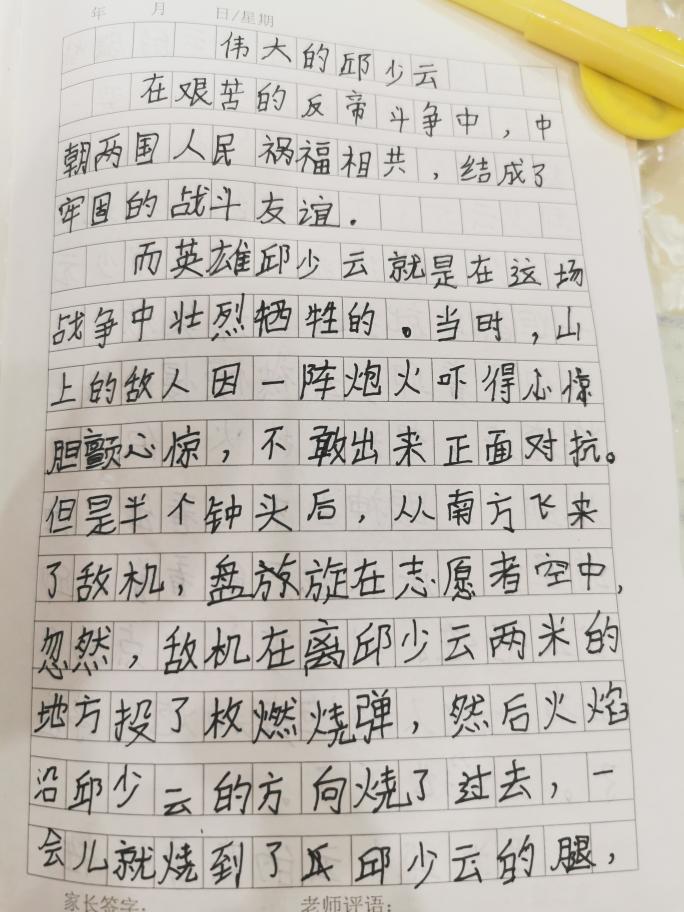 年 月 日/星期
伟大的邱少云
在艰苦的反帝斗争中，中
朝两国人民祸福相共，结成了
牢固的战斗友谊.
而英雄邱少云就是在这场
战争中壮烈牺牲的。当时，山
上的敌人因一阵炮火吓得心惊
胆颤心惊，不敢出来正面对抗。
但是半个钟头后，从南方飞来
了敌机，盘旋在志愿者空中，
忽然，敌机在离邱少云两米的
地方投了枚燃烧弹，然后火焰
沿邱少云的方向烧了过去，一
会儿就烧到了邱少云的腿，
家长签字: 老师评语: